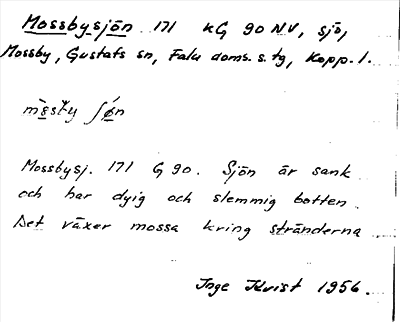 Mossbysjön 171 kG 90 NV, sjö,
Mossby, Gustafs sn, Falu doms. s. tg, Kopp. l.
Mossbysj. 171 G 90. Sjön är sank
och har dyig och slemmig botten.
Det växer mossa kring stränderna
Inge Kvist 1956.